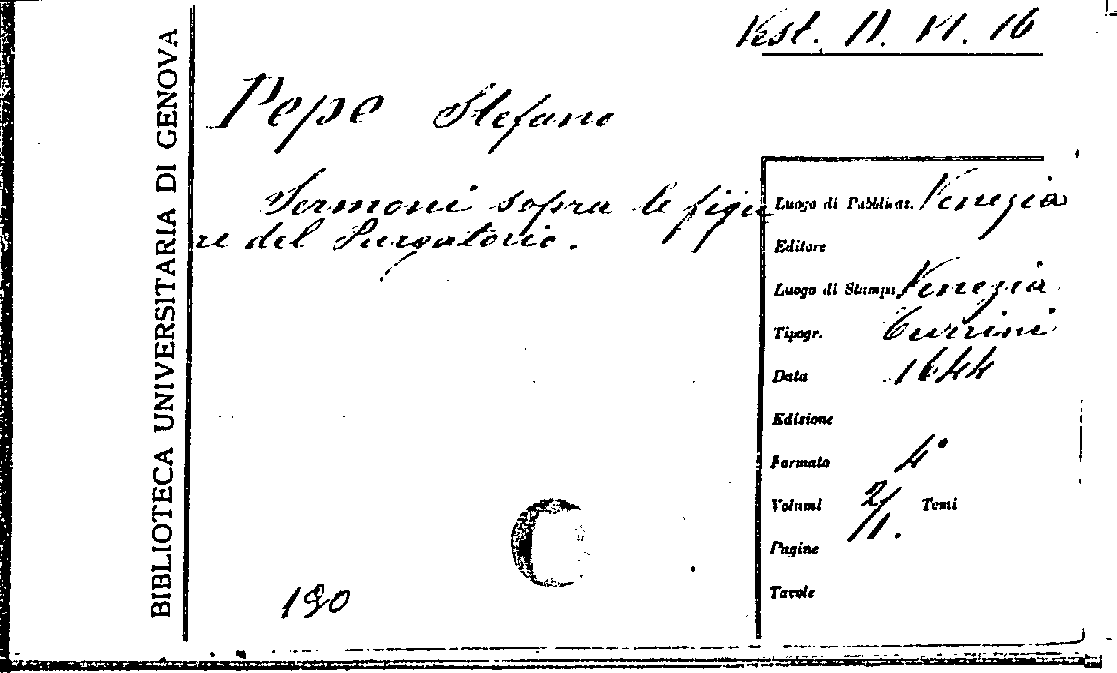 BIBLIOTECA UNIVERSITARIA DI GENOVA
Vest. II. VI. 16
Pepe Stefano
Sermoni sopra le figu
re del Purgatorio.
Luogo di Pubblicaz. Venezia
Editore
Luogo di Stampa Venezia
Tipogr. Turrini
Data 1644
Edizione
Formato 4°
Volumi 2/11. Tomi
Pagine
Tavole
190